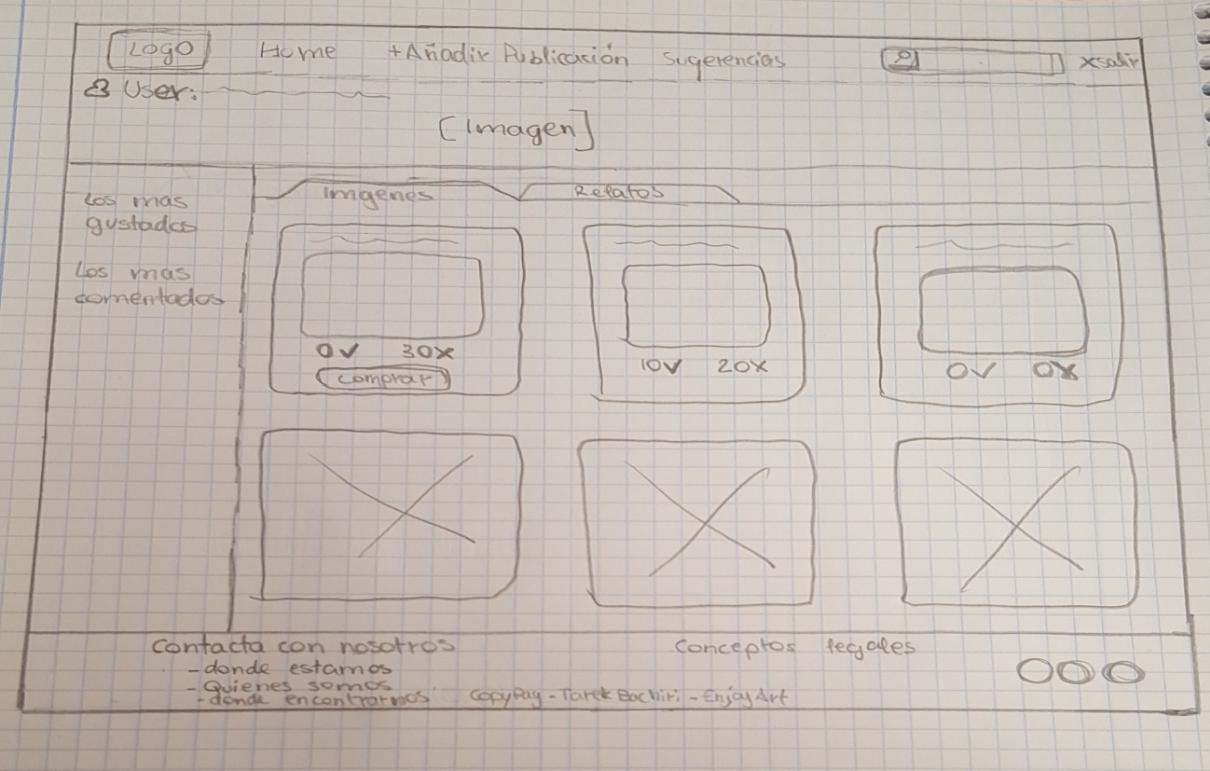 Logo Home +Añadir Publicación Sugerencias xsalir
User:
[Imagen]
Los mas
gustados
Los mas
comentados
Imgenes Relatos
0V 30X
Comprar
10V 20X
0V 0X
Contacta con nosotros
-donde estamos
-Quienes somos
-donde encontrarnos
Conceptos legales
CopyRay - Tarek Bachiri - EnjoyArt